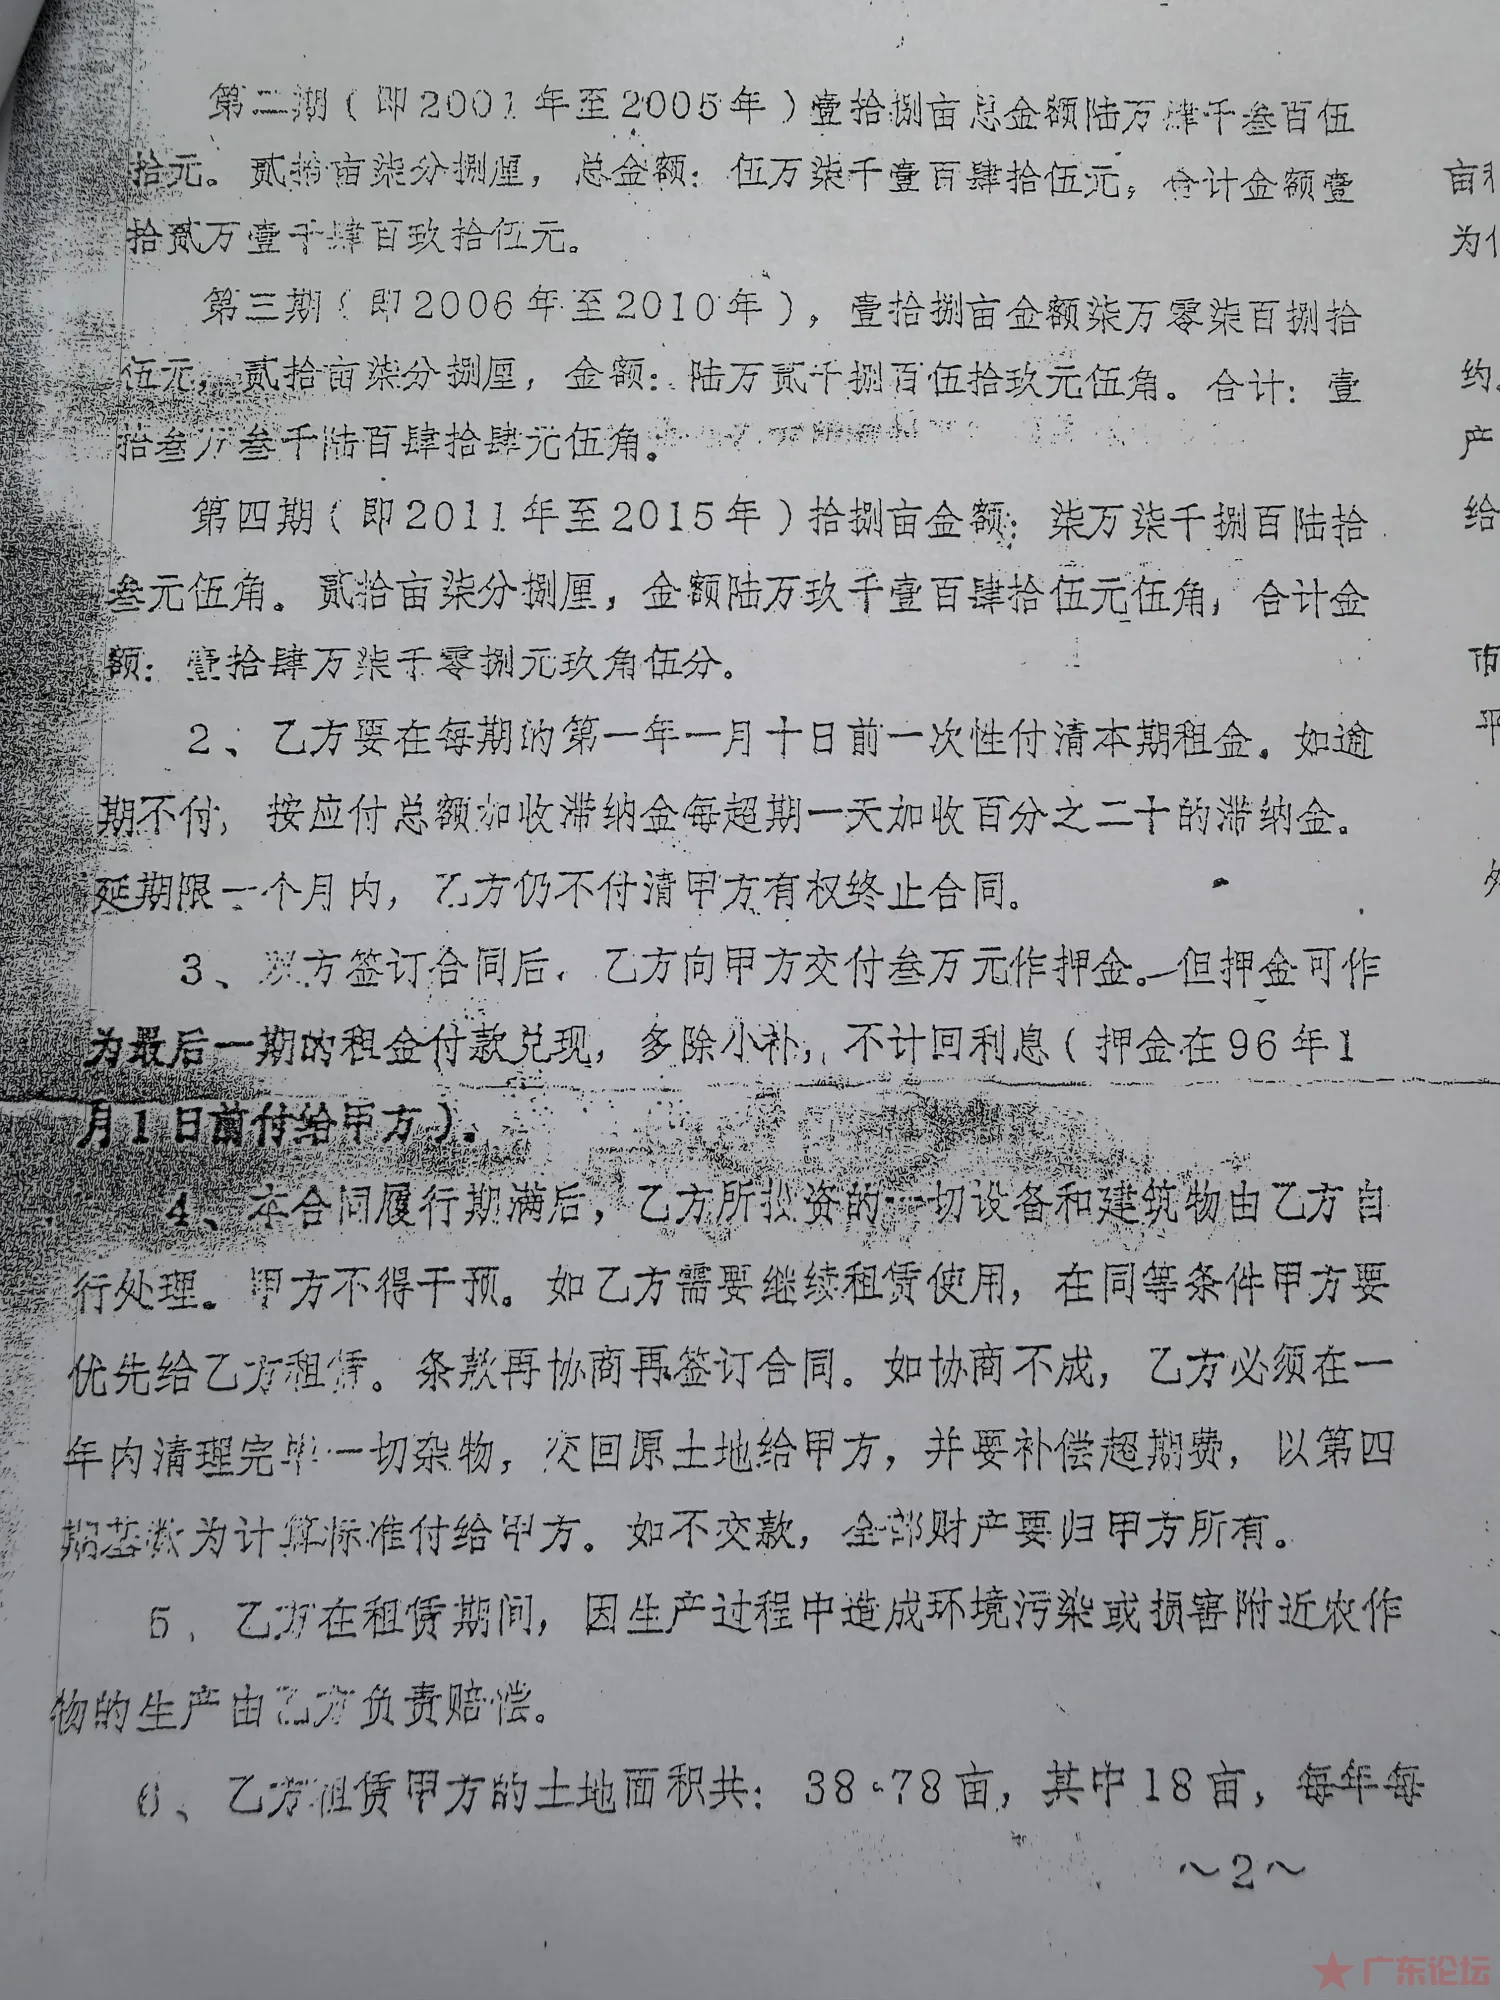 第二期(即2001年至2005年)壹拾捌亩总金额陆万肆千叁百伍
拾元。贰拾亩柒分捌厘,总金额:伍万柒千壹百肆拾伍元,合计金额壹
拾贰万壹千肆百玖拾伍元。
第三期(即2006年至2010年),壹拾捌亩金额柒万零柒百捌拾
伍元,贰拾亩柒分捌厘,金额:陆万贰千捌百伍拾玖元伍角。合计:壹
拾叁万叁千陆百肆拾肆元伍角。
第四期(即2011年至2015年)拾捌亩金额:柒万柒千捌百陆拾
叁元伍角。贰拾亩柒分捌厘,金额陆万玖千壹百肆拾伍元伍角,合计金
额:壹拾肆万柒千零捌元玖角伍分。
2、乙方要在每期的第一年一月十日前一次性付清本期租金。如逾
期不付,按应付总额加收滞纳金每超期一天加收百分之二十的滞纳金。
延期限一个月内,乙方仍不付清甲方有权终止合同。
3、双方签订合同后,乙方向甲方交付叁万元作押金。但押金可作
为最后一期的租金付款兑现,多除小补,不计回利息(押金在96年1
月1日前付给甲方)。
4、本合同履行期满后,乙方所投资的一切设备和建筑物由乙方自
行处理。甲方不得干预。如乙方需要继续租赁使用,在同等条件甲方要
优先给乙方租赁。条款再协商再签订合同。如协商不成,乙方必须在一
年内清理完毕一切杂物,交回原土地给甲方,并要补偿超期费,以第四
期基数为计算标准付给甲方。如不交款,全部财产要归甲方所有。
5、乙方在租赁期间,因生产过程中造成环境污染或损害附近农作
物的生产由乙方负责赔偿。
6、乙方租赁甲方的土地面积共:38.78亩,其中18亩,每年每
~2~
亩
为
约
产
给
市
平
广东论坛